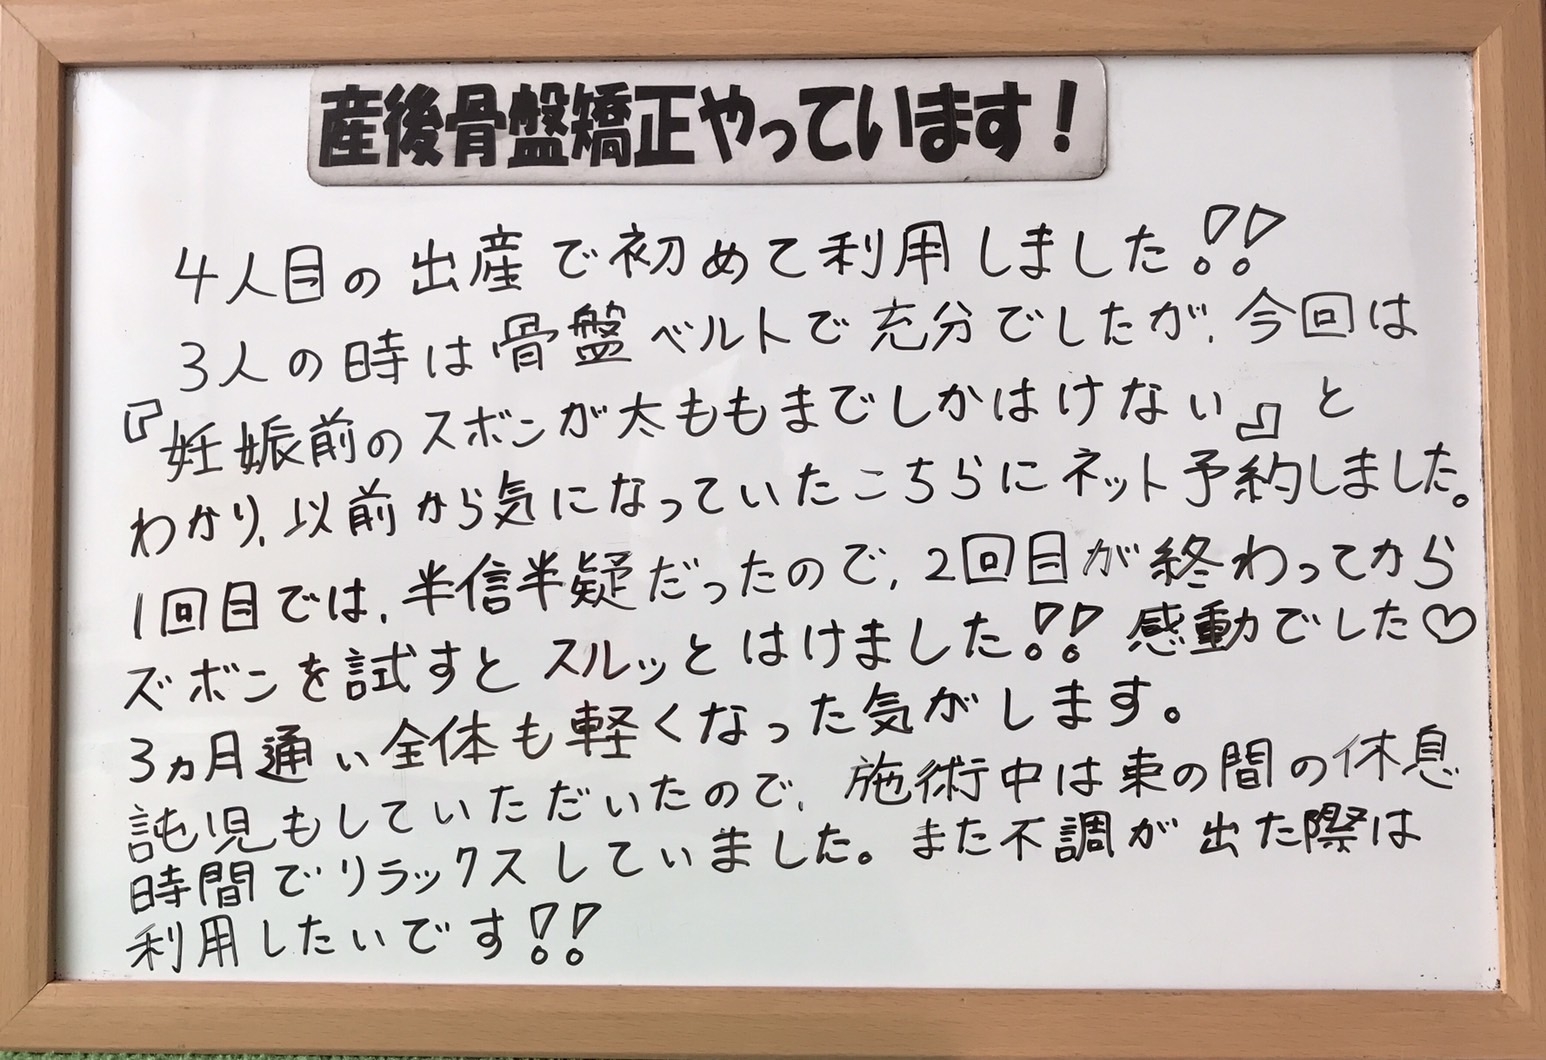 産後骨盤矯正やっています！
4人目の出産で初めて利用しました!!
3人の時は骨盤ベルトで充分でしたが、今回は
『妊娠前のズボンが太ももまでしかはけない』と
わかり、以前から気になっていたこちらにネット予約しました。
1回目では、半信半疑だったので、2回目が終わってから
ズボンを試すとスルッとはけました!! 感動でした♡
3ヵ月通い全体も軽くなった気がします。
託児もしていただいたので、施術中は束の間の休息
時間でリラックスしていました。また不調が出た際は
利用したいです!!